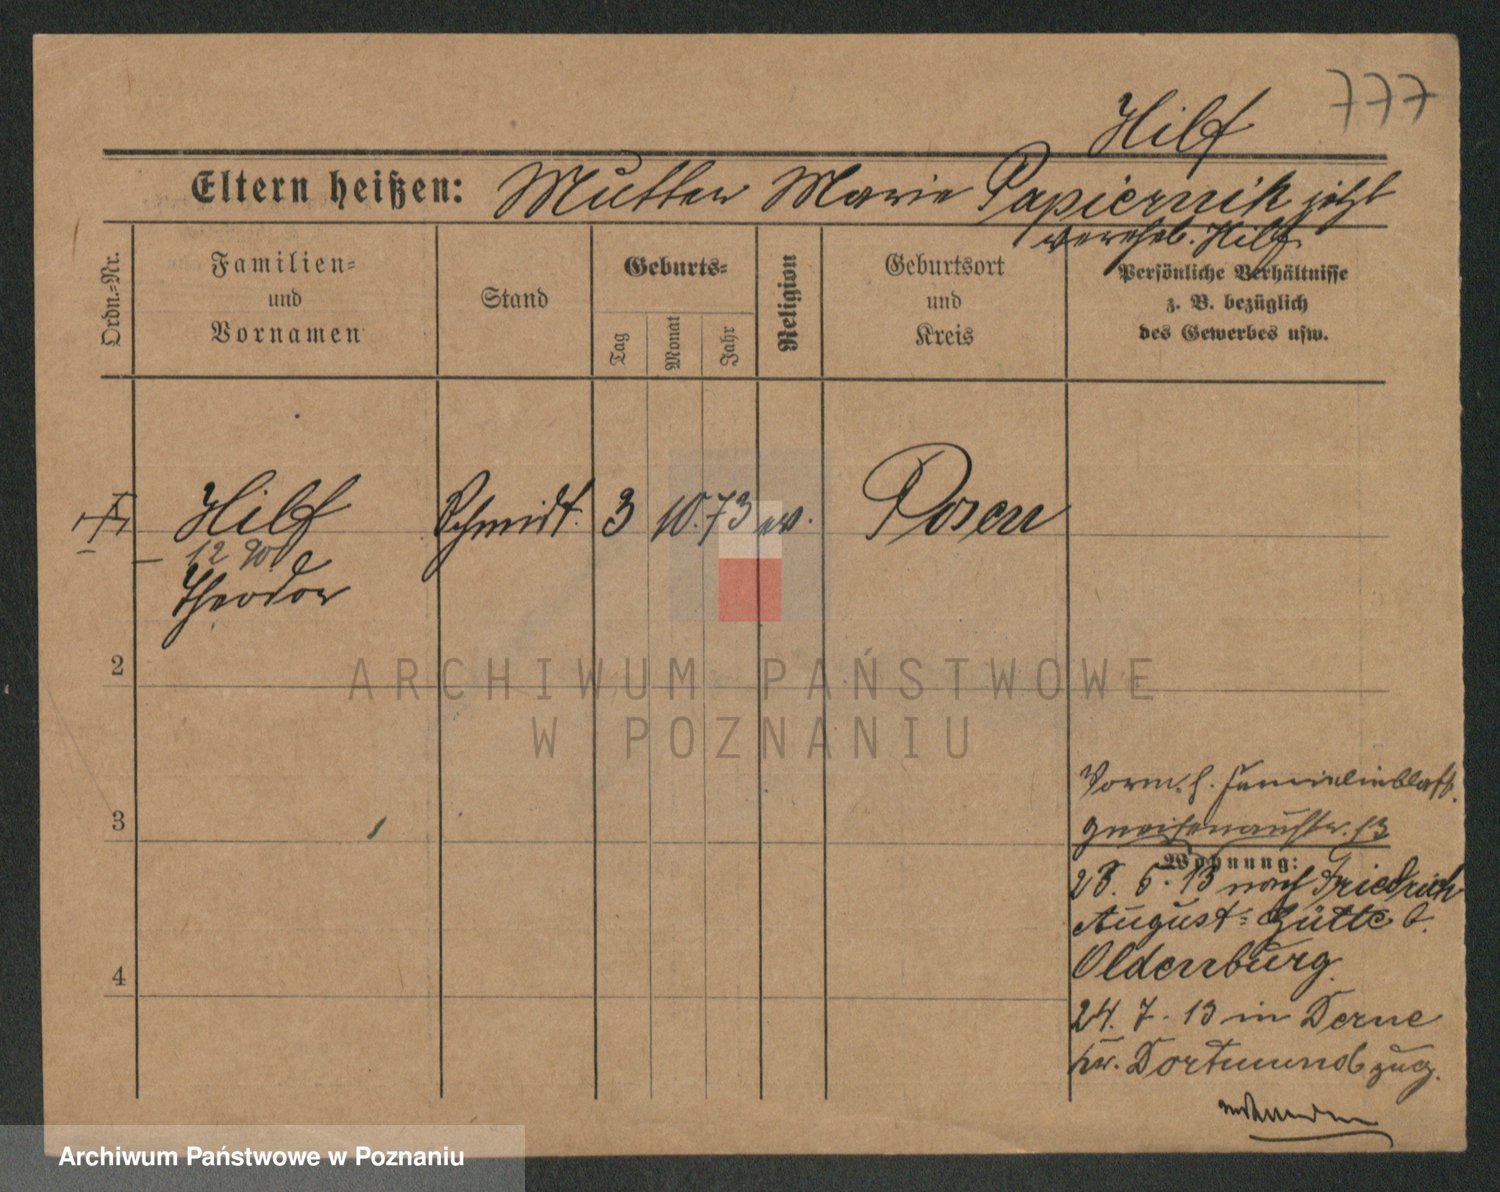 777
Hilf
Eltern heißen: Mutter Marie Papiernik jetzt
vereheb. Hilf
Ordn.-Nr.
Familien-
und
Vornamen
Stand
Geburts-
Tag
Monat
Jahr
Religion
Geburtsort
und
Kreis
Persönliche Verhältnisse
z. B. bezüglich
des Gewerbes usw.
Hilf Schmidt. 3 10. 73 ev. Posen
12
Theodor
2
ARCHIWUM PAŃSTWOWE
W POZNANIU
3
4
Vorm. f. Familienblatt.
Gneisenaustr. 13
Wohnung:
28. 6. 13 nach Friedrich
August-Hütte b.
Oldenburg.
24. 7. 13 in Derne
kr. Dortmund zug.
Archiwum Państwowe w Poznaniu